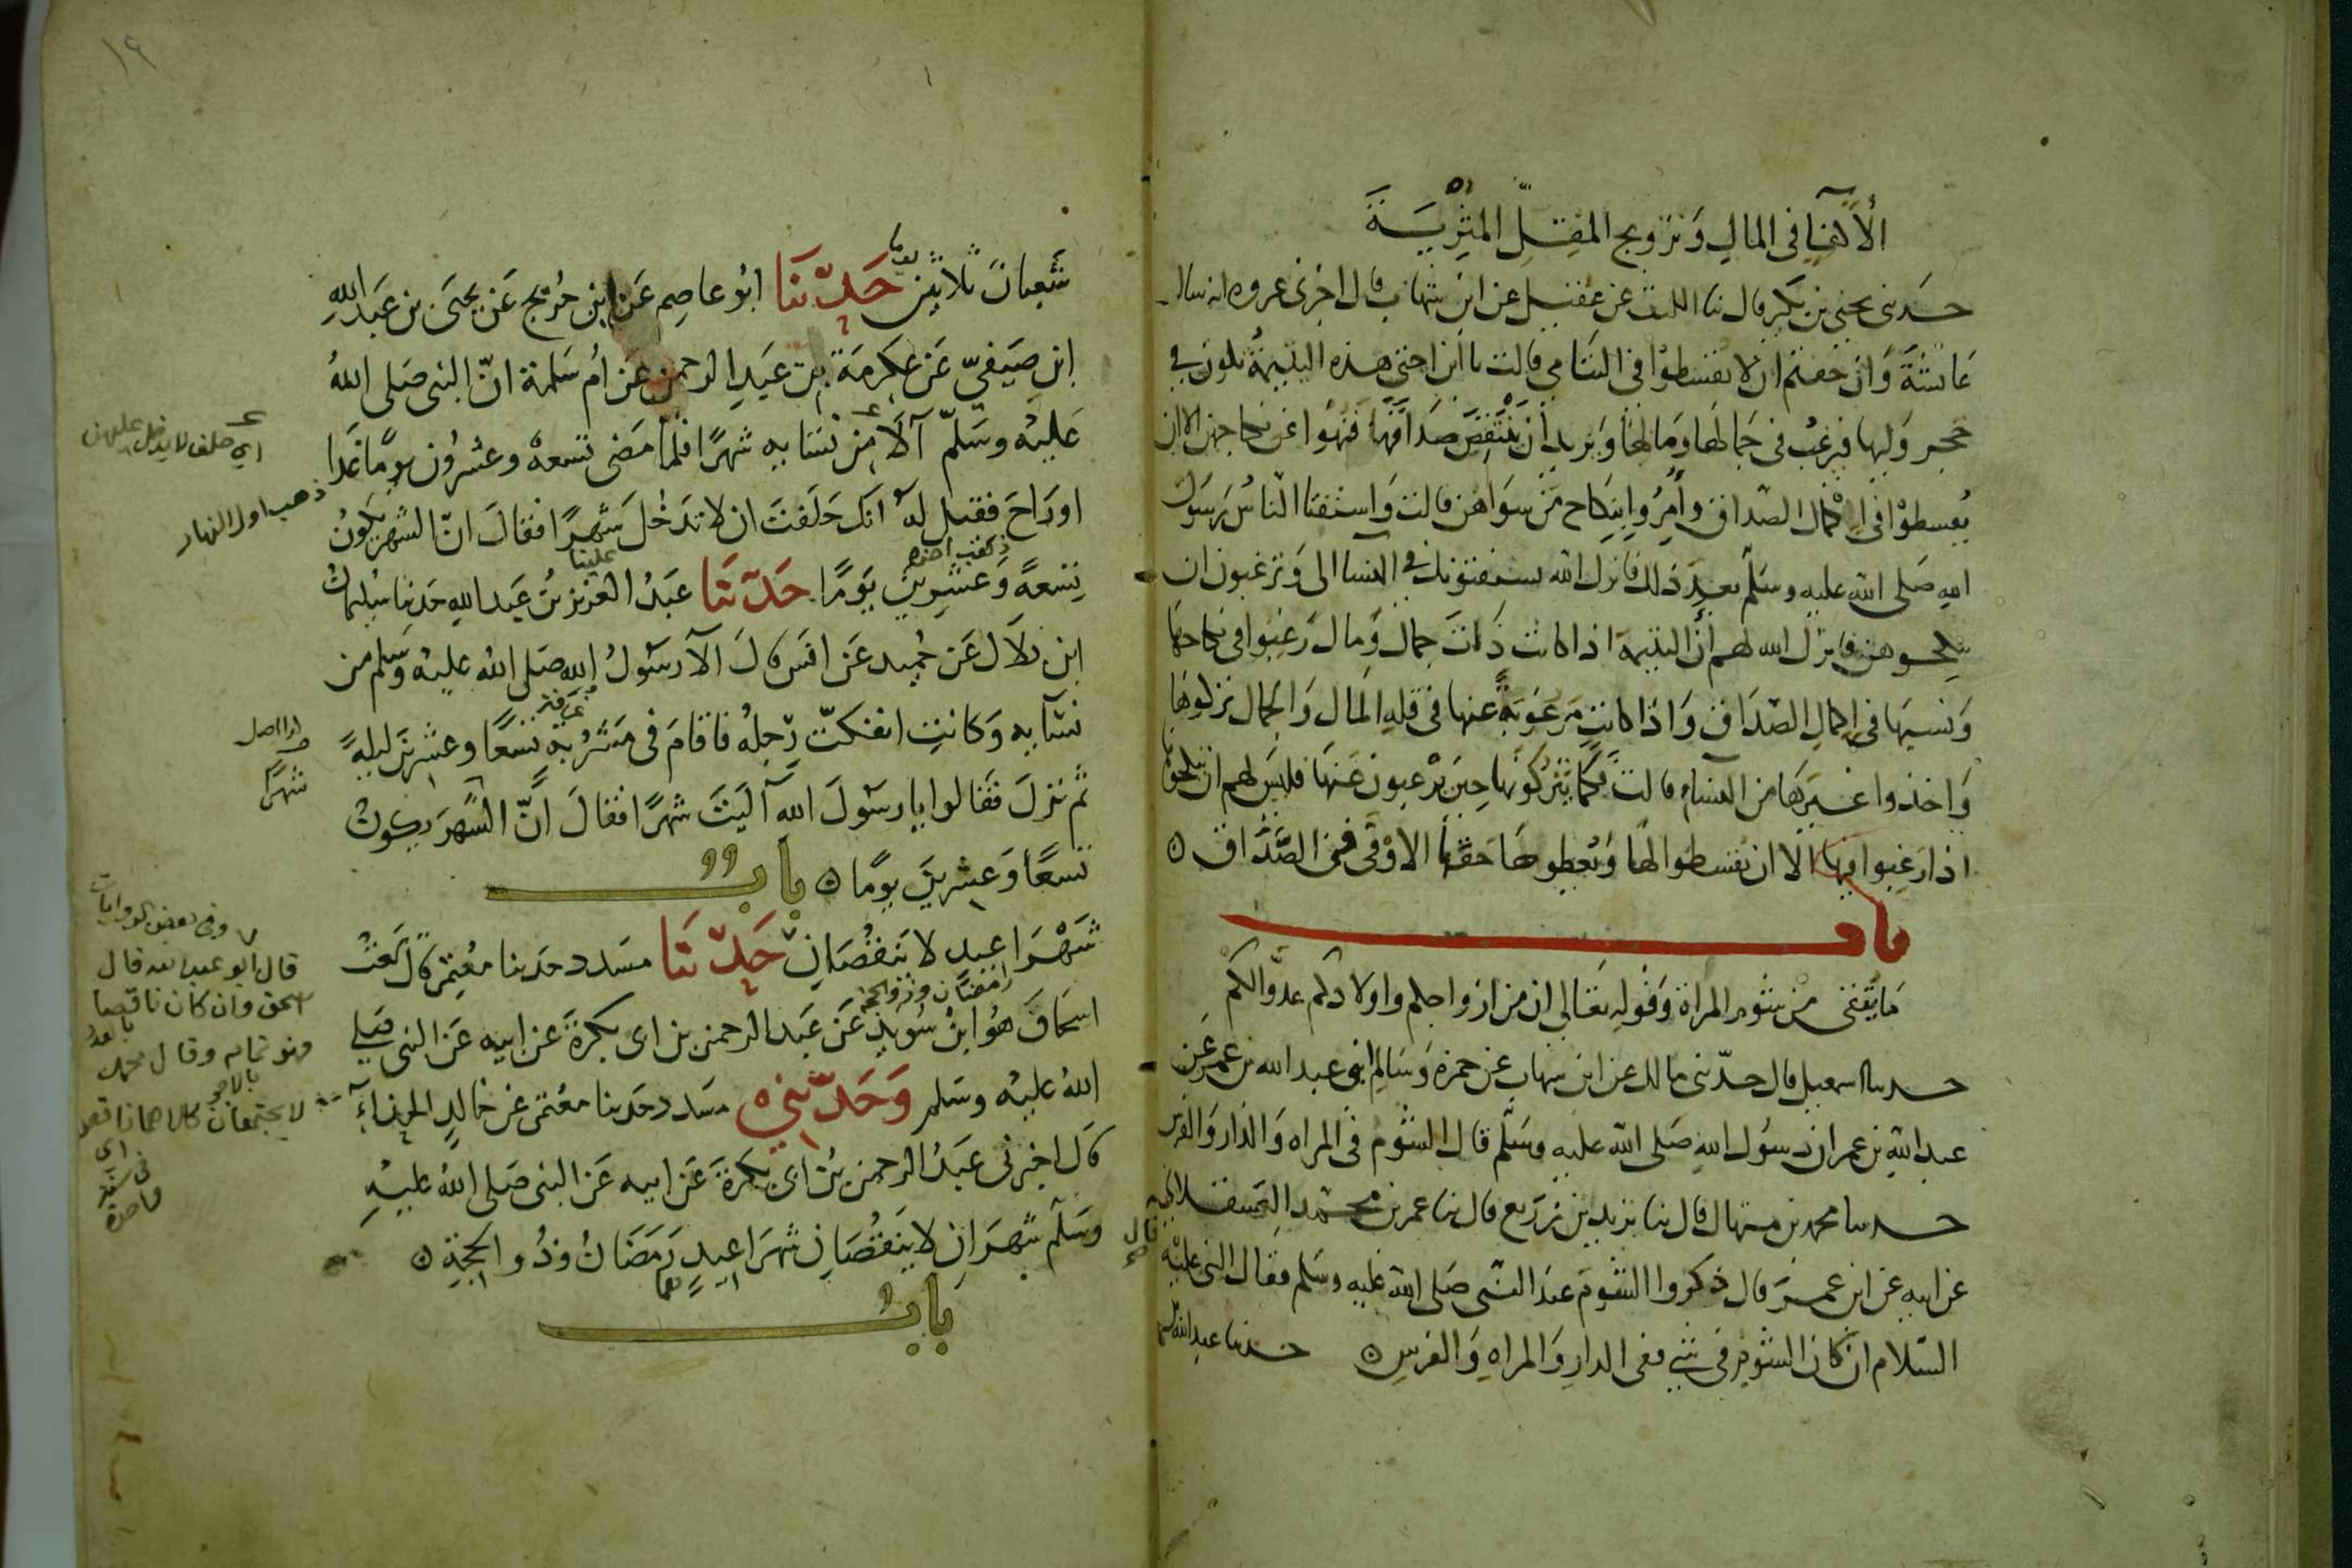 الأكفاء في المال وتزويج المقل المثرية
حدثنى يحيى بن بكير قال ثنا الليث عن عقيل عن ابن شهاب قال اخبرنى عروة انه سال
عائشة وان خفتم ان لا تقسطوا فى اليتامى قالت يا ابن اختي هذه اليتيمة تكون في
حجر وليها فيرغب فى جمالها ومالها ويريد ان ينتقص صداقها فنهوا عن نكاحهن الا ان
يقسطوا فى اكمال الصداق وأمروا بنكاح من سواهن قالت واستفتا الناس رسول
الله صلى الله عليه وسلم بعد ذلك فانزل الله يستفتونك في النسا الى وترغبون ان
تنكحوهن فانزل الله لهم أن اليتيمة اذا كانت ذات جمال ومال رغبوا فى نكاحها
ونسبها فى اكمال الصداق واذا كانت مرغوبة عنها فى قلة المال والجمال تركوها
واخذوا غيرها من النساء قالت فكما يتركونها حين يرغبون عنها فليس لهم ان ينكحوها
اذا رغبوا فيها الا ان يقسطوا لها ويعطوها حقها الاوفى فى الصداق ٥
باب
ما يتقى من شوم المراة وقوله تعالى ان من ازواجكم واولادكم عدوا لكم
حدثنا اسمعيل قال حدثنى مالك عن ابن شهاب عن حمزة وسالم ابنى عبد الله بن عمر عن
عبد الله بن عمر ان رسول الله صلى الله عليه وسلم قال الشوم فى المراه والدار والفرس
حدثنا محمد بن منهال قال ثنا يزيد بن زريع قال ثنا عمر بن محمد العسقلانى
عن ابيه عن ابن عمر قال ذكروا الشوم عند النبى صلى الله عليه وسلم فقال النبى عليه
السلام ان كان الشوم فى شي ففى الدار والمراه والفرس ٥ حدثنا عبد الله
شعبان ثلاثين يوما حدثنا ابو عاصم عن ابن جريج عن يحيى بن عبد الله
ابن صيفي عن عكرمة بن عبد الرحمن عن ام سلمة ان النبى صلى الله
عليه وسلم آلا من نسايه شهرا فلما مضى تسعة وعشرون يوما غدا
او راح فقيل له انك حلفت ان لا تدخل شهرا فقال ان الشهر يكون
تسعة وعشرين يوما حدثنا عبد العزيز بن عبد الله حدثنا سليمان
ابن بلال عن حميد عن انس قال آلا رسول الله صلى الله عليه وسلم من
نسآيه وكانت انفكت رجله فاقام فى مشربة تسعا وعشرين ليلة
ثم نزل فقالوا يا رسول الله آليت شهرا فقال ان الشهر يكون
تسعا وعشرين يوما ٥ باب
شهرا عيد لا ينقصان حدثنا مسدد حدثنا معتمر قال سمعت
رمضان وذو الحجة
اسحاق هو ابن سويد عن عبد الرحمن بن ابى بكرة عن ابيه عن النبى صلى
الله عليه وسلم وحدثنى مسدد حدثنا معتمر عن خالد الحذاء
قال اخبرنى عبد الرحمن بن ابى بكرة عن ابيه عن النبى صلى الله عليه
وسلم شهران لا ينقصان شهرا عيد رمضان وذو الحجة ٥
باب
اي حلف لا يدخل عليهن
ذهب اول النهار
علينا
شهرًا
وفى بعض الروايات
قال ابو عبد الله قال
اسحق وان كان ناقصا
فهو تمام وقال محمد
لا يجتمعان كلاهما ناقص